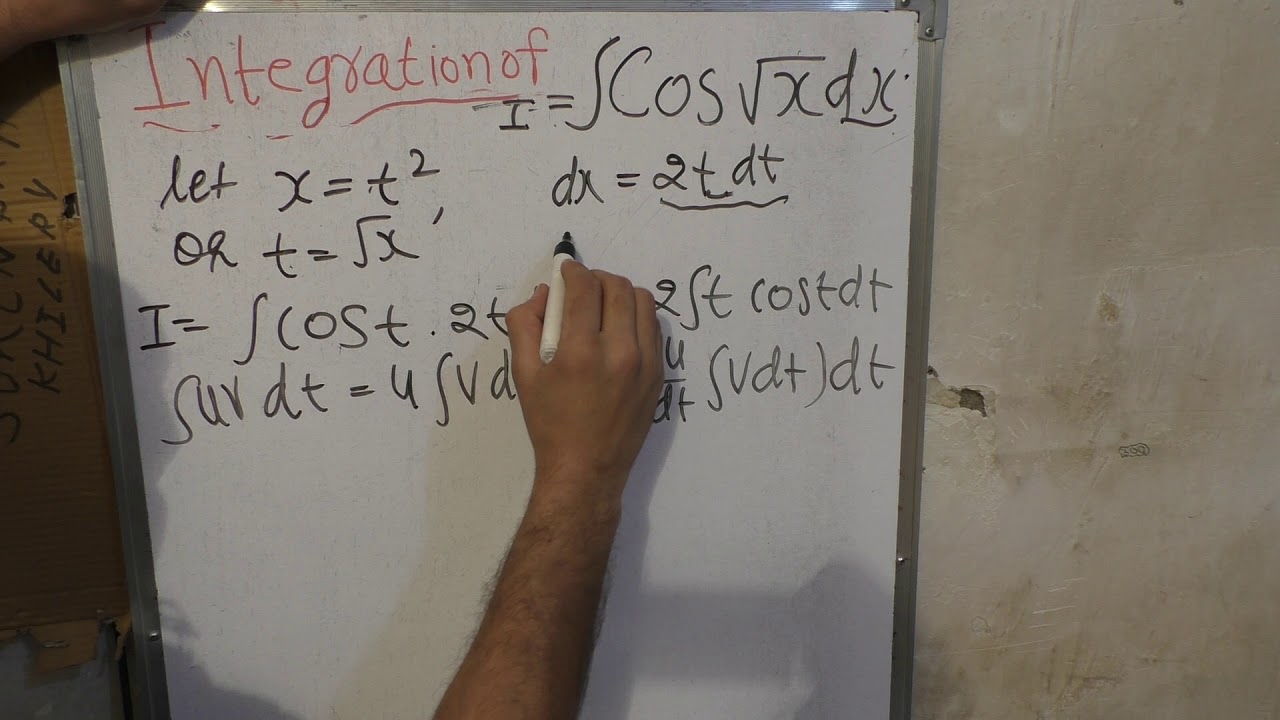 Integration of I = ∫Cos √x dx.
let x = t², dx = 2t dt
or t = √x
I = ∫cos t . 2t 2∫t cos t dt
∫uv dt = u ∫v d ∫v dt) dt
KHILERY